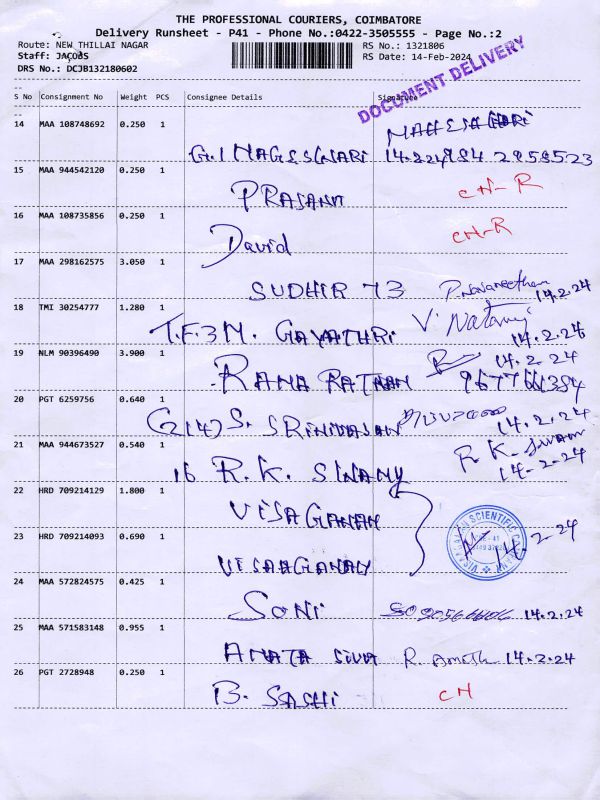 THE PROFESSIONAL COURIERS, COIMBATORE
Delivery Runsheet - P41 - Phone No.:0422-3505555 - Page No.:2
Route: NEW THILLAI NAGAR
RS No.: 1321806
Staff: JACOBS
RS Date: 14-Feb-2024
DRS No.: DCJB132180602
DOCUMENT DELIVERY
S No Consignment No Weight PCS Consignee Details Signature
14 MAA 108748692 0.250 1
G.I NAGESWARI
15 MAA 944542120 0.250 1
PRASANT CH-R
16 MAA 108735856 0.250 1
David CH-R
17 MAA 298162575 3.050 1
SUDHIR 73 14.2.24
18 TMI 30254777 1.280 1
T.F.3M. GAYATHRI V. 14.2.24
19 NLM 90396490 3.900 1
14.2.24
RAMA RATHAN
20 PGT 6259756 0.640 1
(214) S. SRINIVASAN 14.2.24
21 MAA 944673527 0.540 1
R.K. Swamy
16 R.K. SWAMY 14-2-24
22 HRD 709214129 1.800 1
VISAGANAN
23 HRD 709214093 0.690 1
14.2.24
VISAAGANAN
24 MAA 572824575 0.425 1
SONI 14.2.24
25 MAA 571583148 0.955 1
SIVA R. 14.2.24
26 PGT 2728948 0.250 1
B. SASHI CH